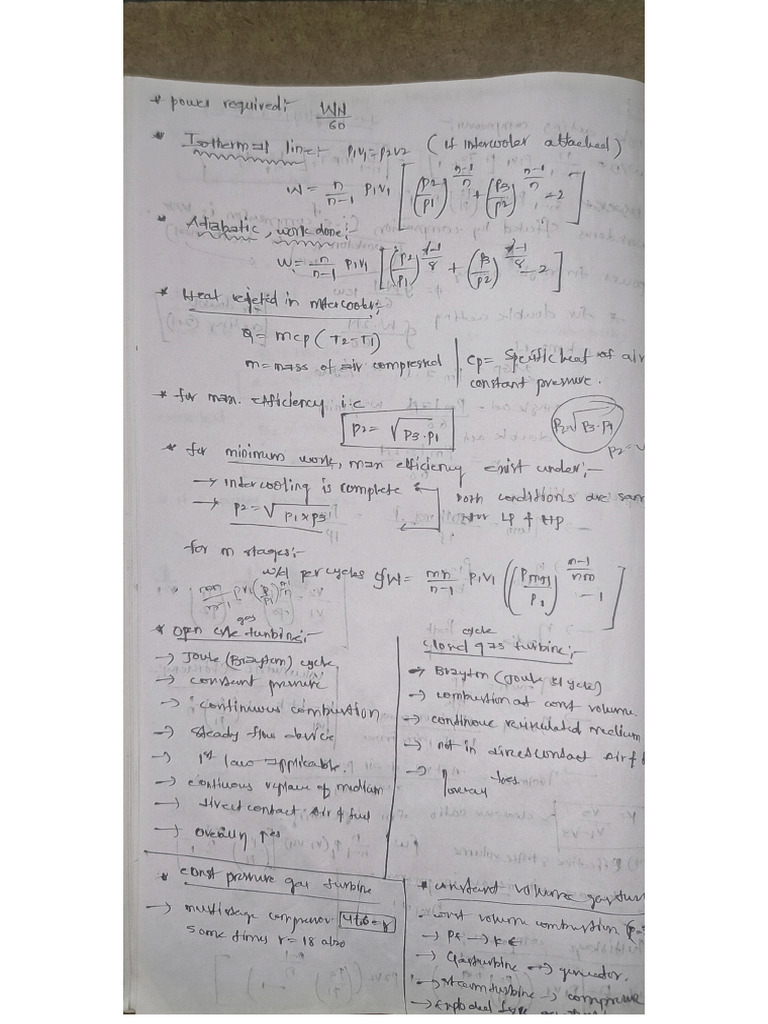 * power required:- WN/60
* Isothermal line:- P1V1=P2V2 (if intercooler attached)
W = n/n-1 P1V1 [(P2/P1)^n-1/n + (P3/P2)^n-1/n - 2]
* Adiabatic, workdone:-
W = n/n-1 P1V1 [(P2/P1)^γ-1/γ + (P3/P2)^γ-1/γ - 2]
* Heat rejected in intercooler:-
Q = mcp (T2-T1)
m = mass of air compressed
Cp = Specific heat of air
constant pressure.
* for max. efficiency i.e
P2 = √P3.P1
P2√P3.P1
P2 = √
* for minimum work, max efficiency exist under:-
→ Intercooling is complete
→ P2 = √P1×P3
Both conditions are sam
for LP & HP
for m stages:-
w/d per cycles W = mn/n-1 P1V1 ((Pm+1/P1)^n-1/nm - 1]
* open cycle gas turbine:-
→ Joule (Brayton) cycle
→ constant pressure
→ continuous combustion
→ steady flow device
→ 1st law applicable.
→ continuous replace of medium
→ direct contact air & fuel
→ overall
closed cycle gas turbine:-
→ Brayton (Joule cycle)
→ combustion at const volume.
→ continous recirculated medium
→ not in direct contact air &
→
* const pressure gas turbine
→ multistage compressor 4 to 6 = r
some times r = 18 also
* constant volume gas tur
→ const volume combustion
→ Gas turbine → generator.
→ steam turbine → compress
→ exploded type